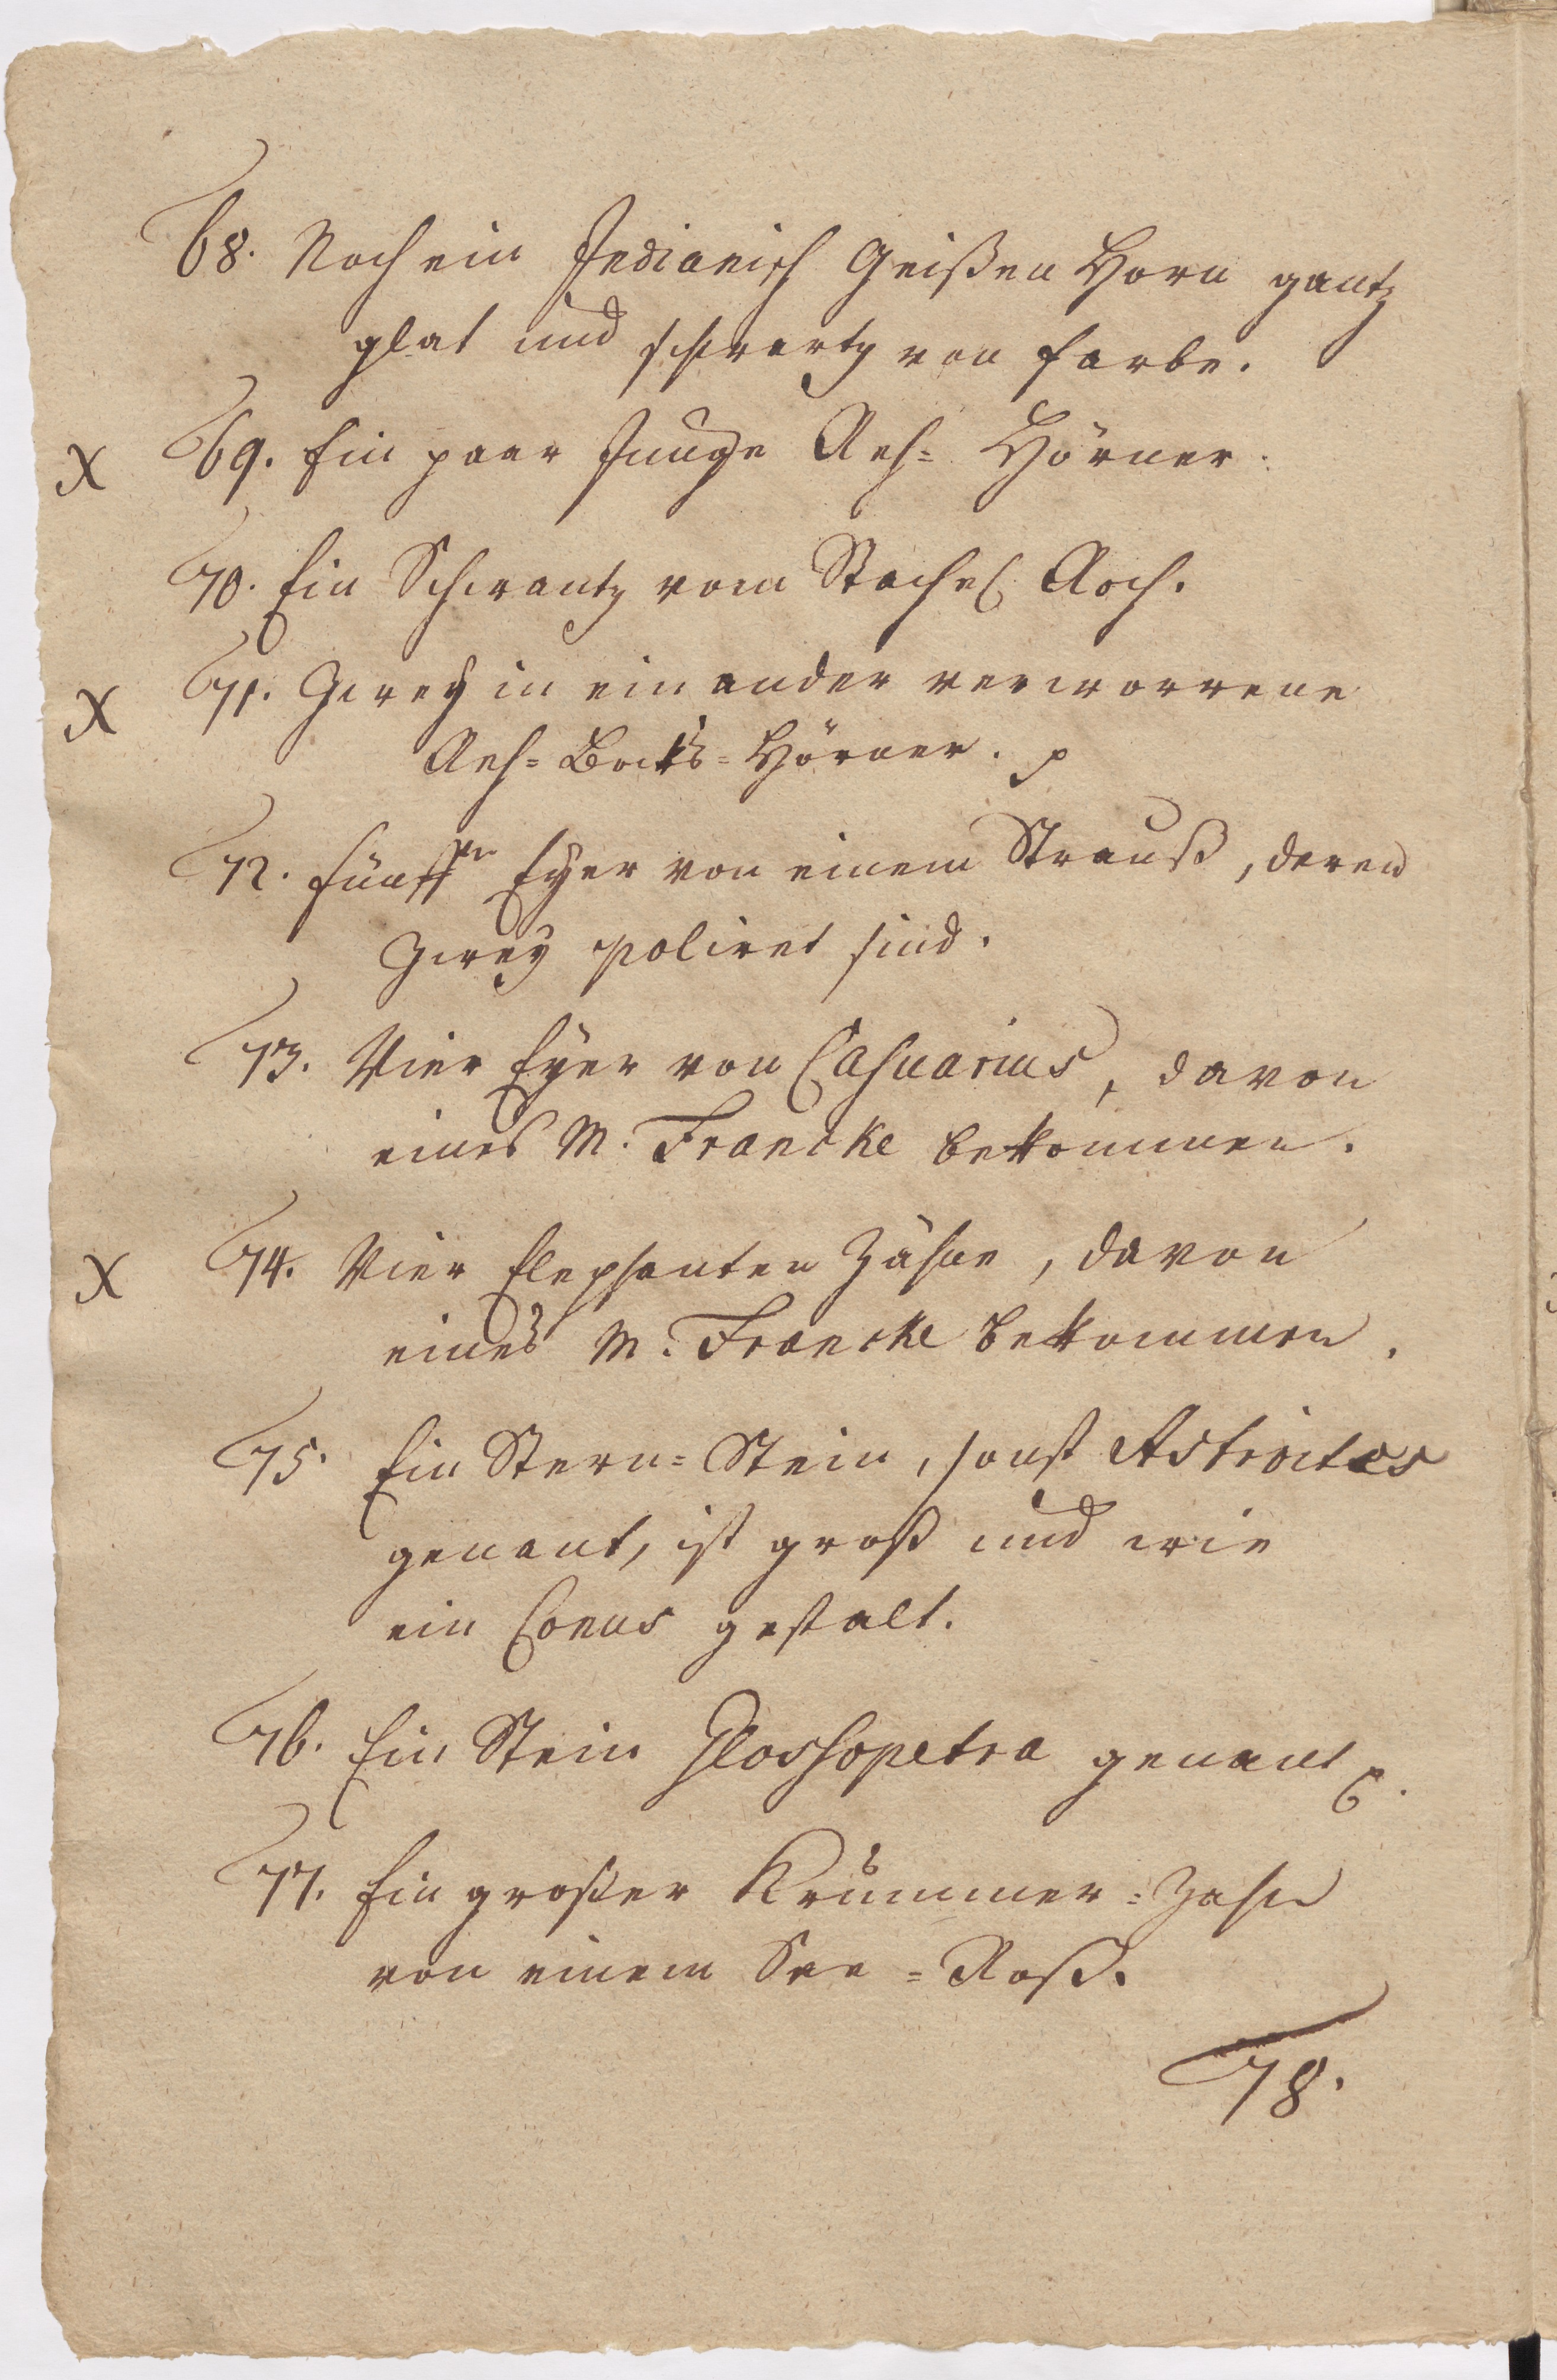 68. Noch ein Indianisch Geißen Horn gantz
glat und schwartz von farbe.
X 69. Ein paar Junge Reh= Hörner.
70. Ein Schwantz vom Stachel Roch.
X 71. Zwey in ein ander verworrene
Reh=Bocks=Hörner. p
72. fünff Eyer von einem Strauß, deren
Zwey poliret sind.
73. Vier Eyer von Casuarius, davon
eines M. Francke bekommen.
X 74. Vier Elephanten Zähne, davon
eines M. Francke bekommen.
75. Ein Stern=Stein, sonst Astroites
genant, ist groß und wie
ein Conus gestalt.
76. Ein Stein Glossopetra genant p.
77. Ein großer Krummer=Zahn
von einem See=Roß.
78.